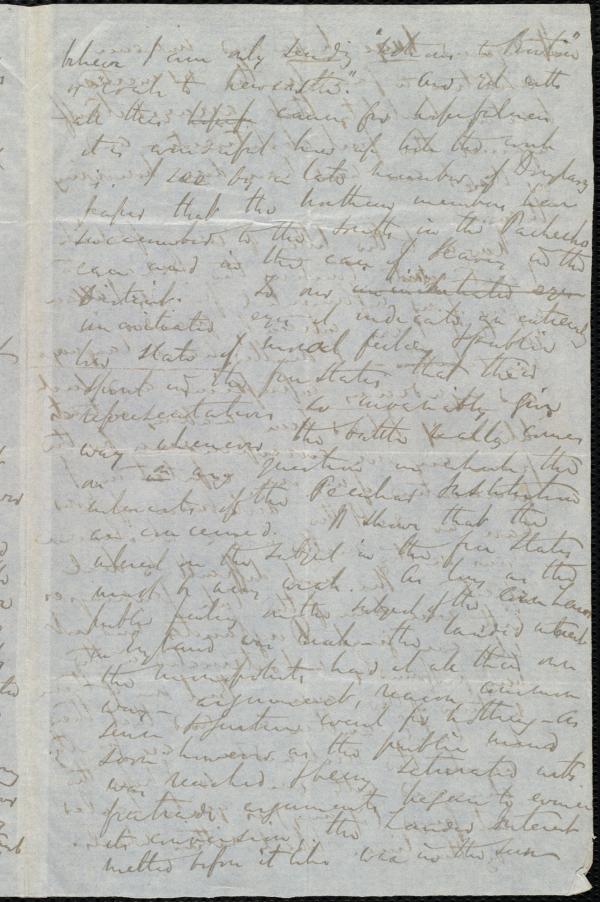 believe I am only sending "

or coals to Newcastle". and with
all this cause for hopefulness
it is up with the work
I see by a late number of Douglass'
paper that the Northern members have
succumbed to the South, in the Pacheco
case and in the case of in the
District. To our uninitiated eyes
uninitiated eyes it indicates an entirely
low state of moral feeling & public
spirit in the free states that their
representatives so invariably give
way whenever the battle really comes
on in any question in which the
interests of the Peculiar Institution
are concerned. It shows that the
interest on the subject in the free States
must be very weak. As long as the
public feeling on the subject of the Corn Laws
in England was weak the landed interest
the monopolists had it all their own
way - argument, reason, common
sense & justice went for nothing - As
soon however as the public mind
was reached & being saturated with
arguments began to evince
its conversion, the Landed Interest
melted before it like wax in the sun